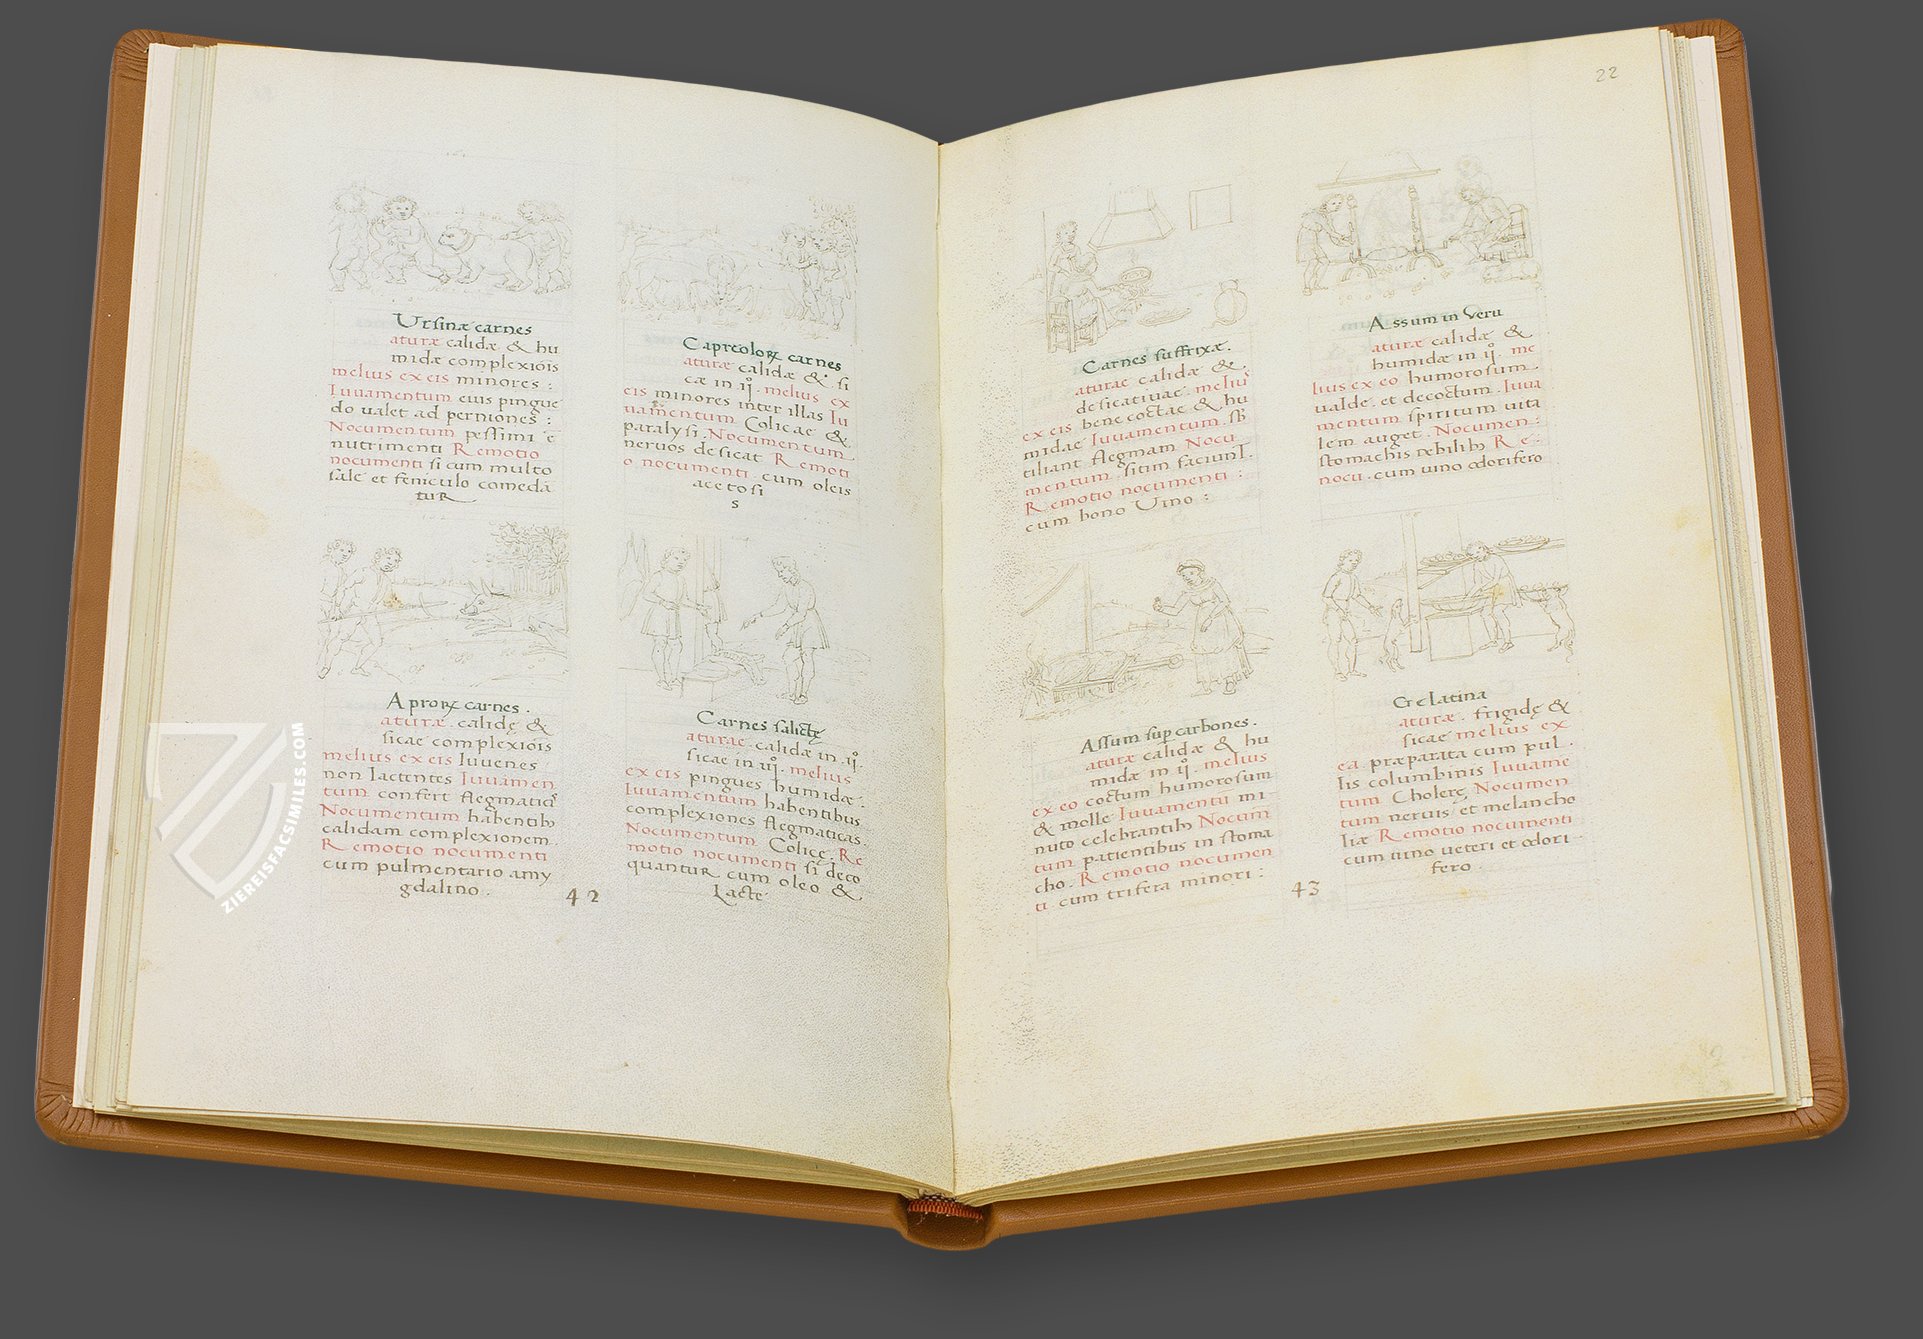 22
Ursinæ carnes
aturæ calidæ & hu
midæ complexiõis
melius ex eis minores :
Iuuamentum eius pingue
do ualet ad perniones :
Nocumentum pessimi ē
nutrimenti Remotio
nocumenti si cum multo
sale et feniculo comedã
tur
Capreoloꝝ carnes
aturæ calidæ & si
cæ in ij. melius ex
eis minores inter illas Iu
uamentum Colicæ &
paralysi. Nocumentum
neruos desicat Remoti
o nocumenti. cum oleis
acetosi
s
Aproꝝ carnes.
aturæ. calidę &
sicae complexiõis
melius ex eis Iuuenes
non lactentes Iuuamen
tum confert flegmaticis
Nocumentum habentib;
calidam complexionem
Remotio nocumenti
cum pulmentario amy
gdalino.
Carnes salictę
aturae. calidæ in ij.
sicae in iij. melius
ex eis pingues humidæ.
Iuuamentum habentibus
complexiones flegmaticas.
Nocumentum Colicę. Re
motio nocumenti si deco
quantur cum oleo &
Lacte
42
Carnes suffrixæ.
aturae calidæ &
desicatiuae. meliu᾿
ex eis bene coctae & hu
midae Iuuamentum. sb̃
tiliant flegmam Nocu
mentum. sitim faciunt.
Remotio nocumenti :
cum bono Uino :
Assum in Veru
aturæ calidæ &
humidæ in ij. me
lius ex eo humorosum
ualde. et decoctum. Iuua
mentum spiritum uita
lem auget. Nocumen:
stomachis debilib; Re-
nocu. cum uino odorifero
Assum sup carbones.
aturæ calidæ & hu
midæ in ij. melius
ex eo coctum humorosum
& molle Iuuamentũ mi
nuto celebrantib; Nocum
tum patientibus in stoma
cho. Remotio nocumen
ti cum trifera minori :
Gelatina
aturæ. frigidę &
sicae melius ex
ea præparata cum pul.
lis columbinis Iuuame
tum Cholerę Nocumen
tum neruis et melancho
liæ Remotio nocumenti
cum uino ueteri et odori-
fero.
43
ZIEREISFACSIMILES.COM